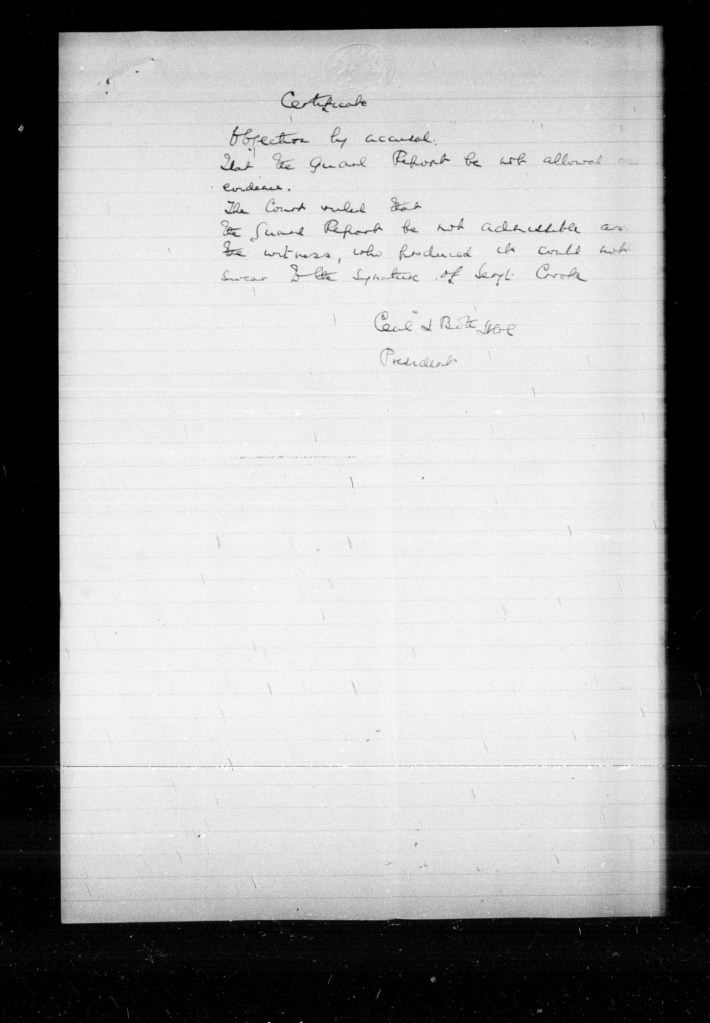 Certificate
Objection by accused.
That the Guard Report be not allowed
evidence.
The Court ruled that
the Guard Report be not admissible as
the witness, who produced it could not
swear to the signature of Sergt Crook
President